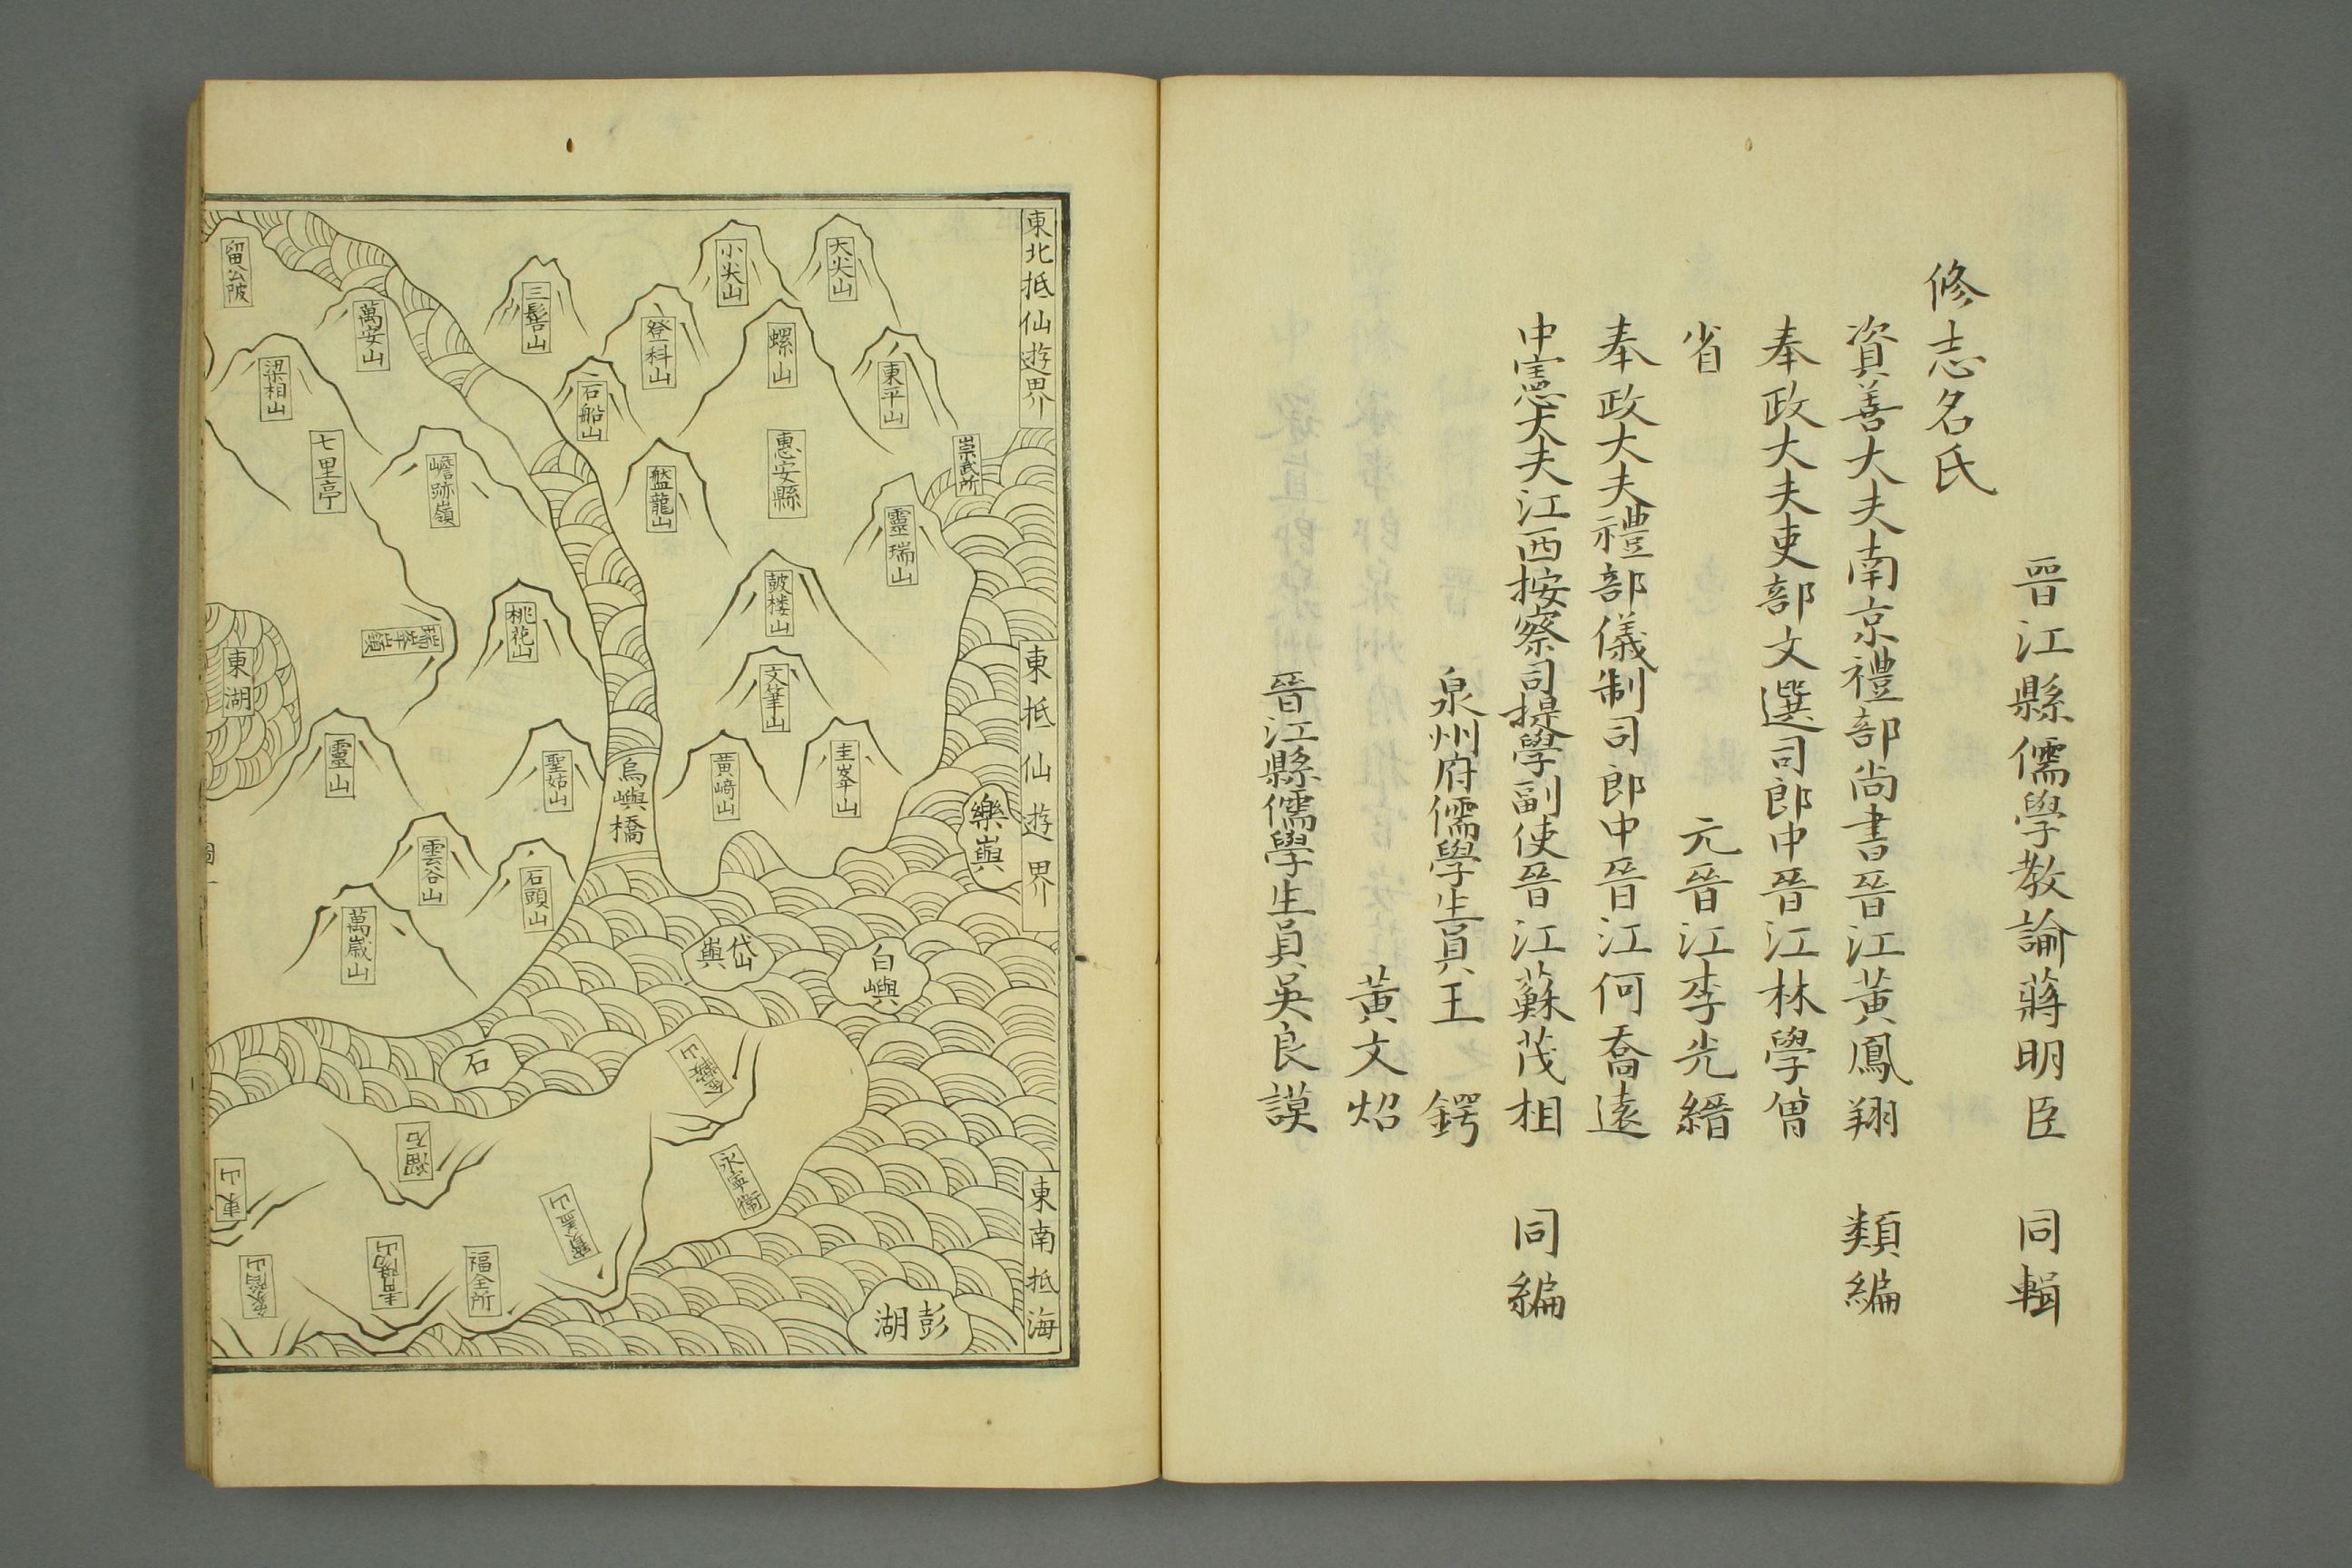 晉江縣儒學教諭蔣明臣　同輯
修志名氏
資善大夫南京禮部尚書晉江黃鳳翔　類編
奉政大夫吏部文選司郎中晉江林學曾
省　元晉江李光縉
奉政大夫禮部儀制司郎中晉江何喬遠
中憲大夫江西按察司提學副使晉江蘇茂相　同編
泉州府儒學生員王　鍔
黃文炤
晉江縣儒學生員吳良謨
東北抵仙遊界
東抵仙遊界
東南抵海
大尖山
小尖山
三髻山
登科山
螺山
東平山
石船山
崇武所
惠安縣
盤龍山
靈瑞山
皷楼山
文筆山
圭峯山
黃崎山
樂嶼
烏嶼橋
岱嶼
白嶼
彭湖
留公陂
萬安山
梁相山
七里亭
嶦跡嶺
桃花山
東湖
靈山
聖姑山
雲谷山
石頭山
萬歲山
石
永寧衛
寶盖山
福全所
東山